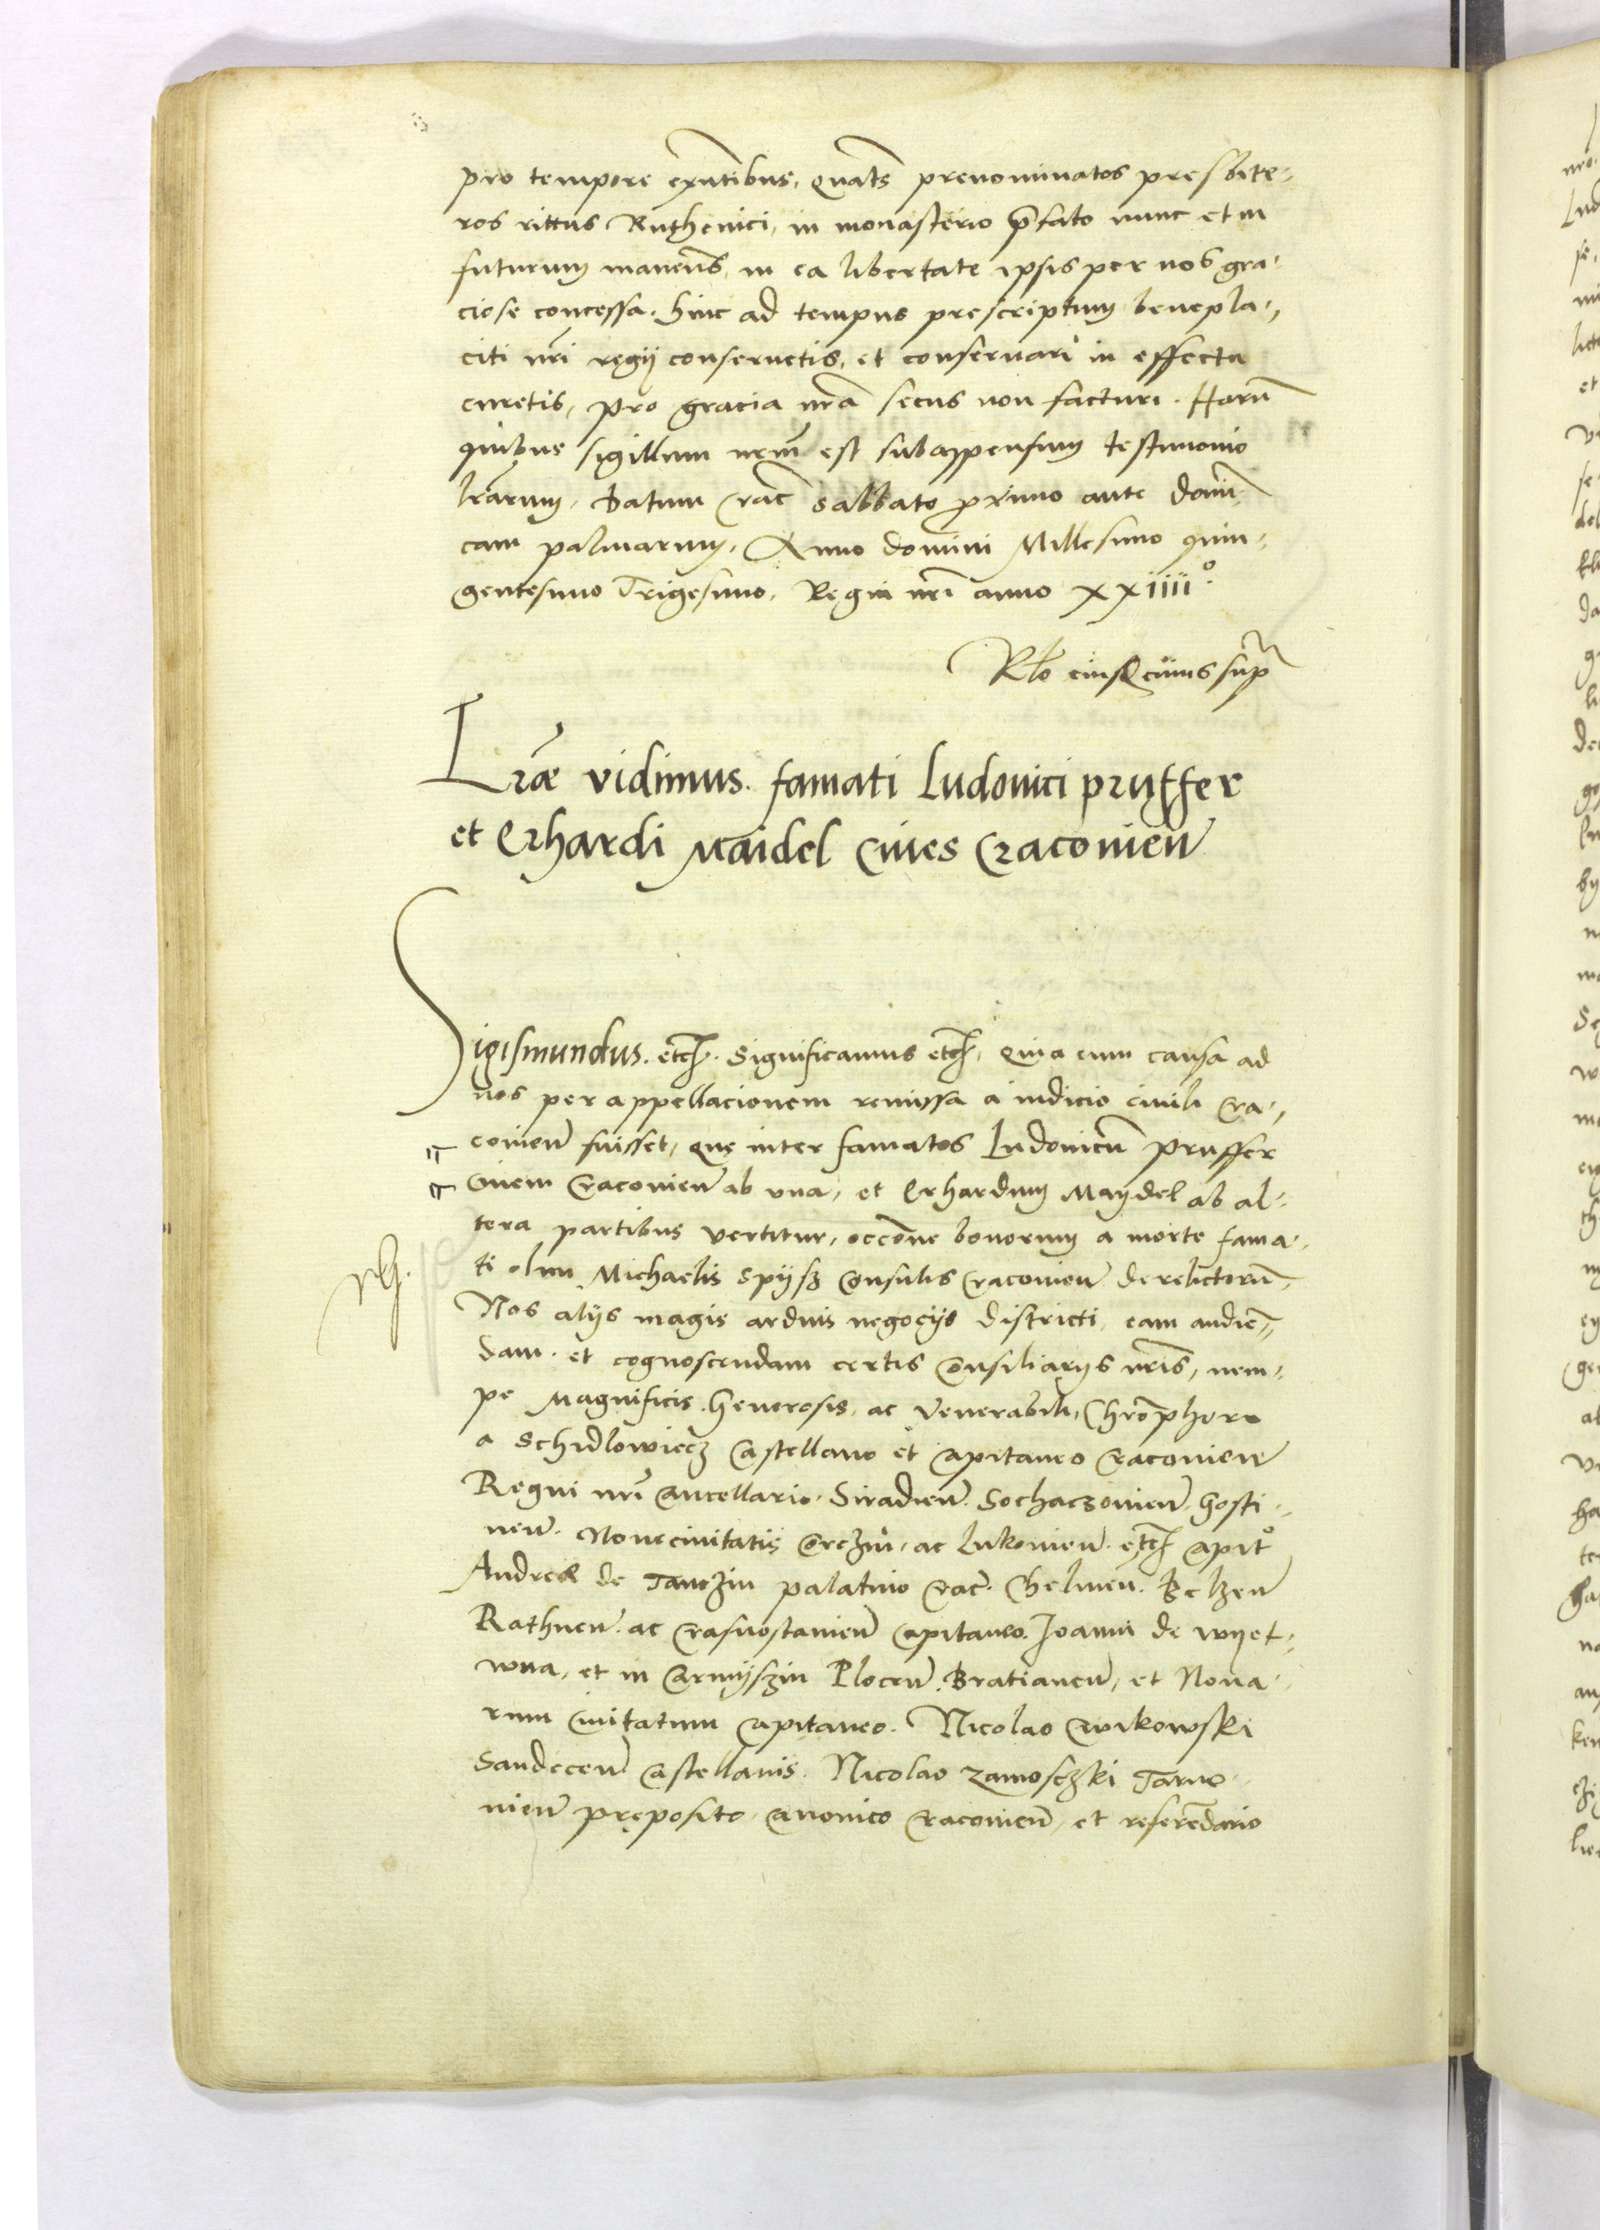 pro tempore exñtibus, quat̃s prenominatos presbite-
ros rittus Ruthenici, in monasterio p̃fato nunc et in
futurum maneñs, in ea libertate ipsis per nos gra-
ciose concessa. hinc ad tempus prescriptum benepla-
citi nr̃i regij conseruetis, et conseruari in effectu
curetis, pro gracia nr̃a secus non facturi. Harũ
quibus sigillum nr̃m est subappensum testimonio
lr̃arum. Datum Crac̃ sabbato pximo ante domĩ-
cam palmarum, Anno domini Millesimo quin-
gentesimo Trigesimo, Regni nr̃i anno xxiiii°.
Rlo eiusdẽ cuius supᵃ
Lr̃æ vidimus. famati Ludouici pruffer
et Erhardi Maidel Ciues Cracouieñ
Sigismundus. etc̃. Significamus etc̃, Quia cum causa ad
nos per appellacionem remissa a iudicio ciuili Cra-
couieñ fuisset, que inter famatos Ludouicũ pruffer
Ciuem Cracouieñ ab vna, et Erhardum Maydel ab al-
tera partibus vertitur, occõne bonorum a morte fama-
ti olim Michaelis Spijsz Consulis Cracouieñ derelictorũ
Nos alijs magis arduis negocijs districti, eam audiẽ-
dam. et cognoscendam certis Consiliarijs nr̃is, nem-
pe Magnificis. Generosis, ac Venerabili, Chrõphoro
a Schidlowiecz Castellano et Capitaneo Cracouieñ
Regni nr̃i Cancellario. Siradieñ. Sochaczouieñ. Gosti-
neñ. Nouecciuitatis Corczin, ac Lukouieñ. etc̃ Capit°
Andreæ de Tanczin palatino Crac̃. Chelmeñ. Belzeñ
Rathneñ. ac Crasnostawieñ Capitaneo. Joanni de wyet-
wna, et in Czarnijszin Ploceñ. Bratianeñ, et Noua-
rum Ciuitatum Capitaneo. Nicolao Cwikowski
Sandeceñ Castellanis. Nicolao zamosczki Tarno-
uieñ pręposito Canonico Cracouieñ, et referẽdario